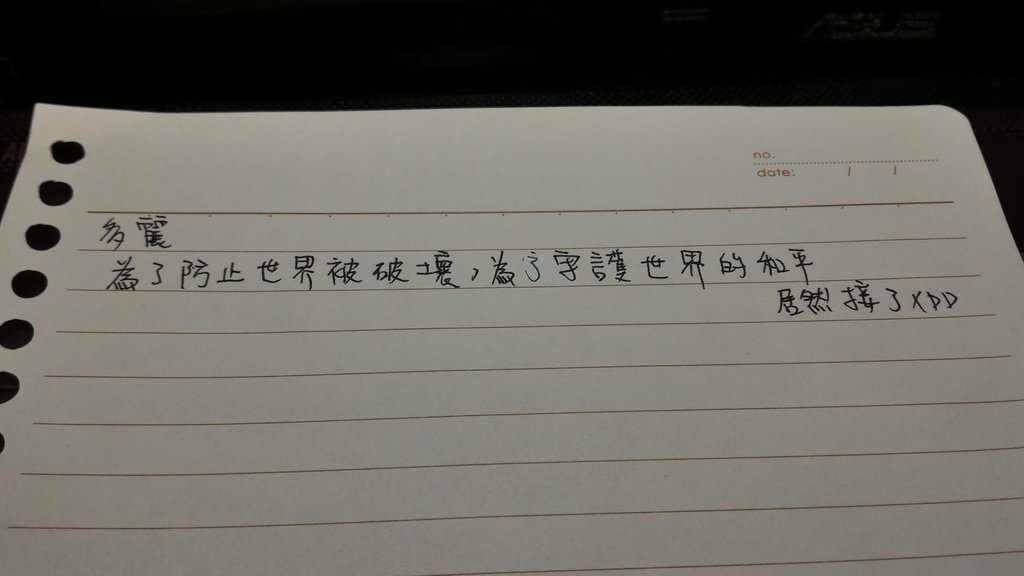 no.
date: / /
多震
為了防止世界被破壞,為了守護世界的和平
居然接了XDD